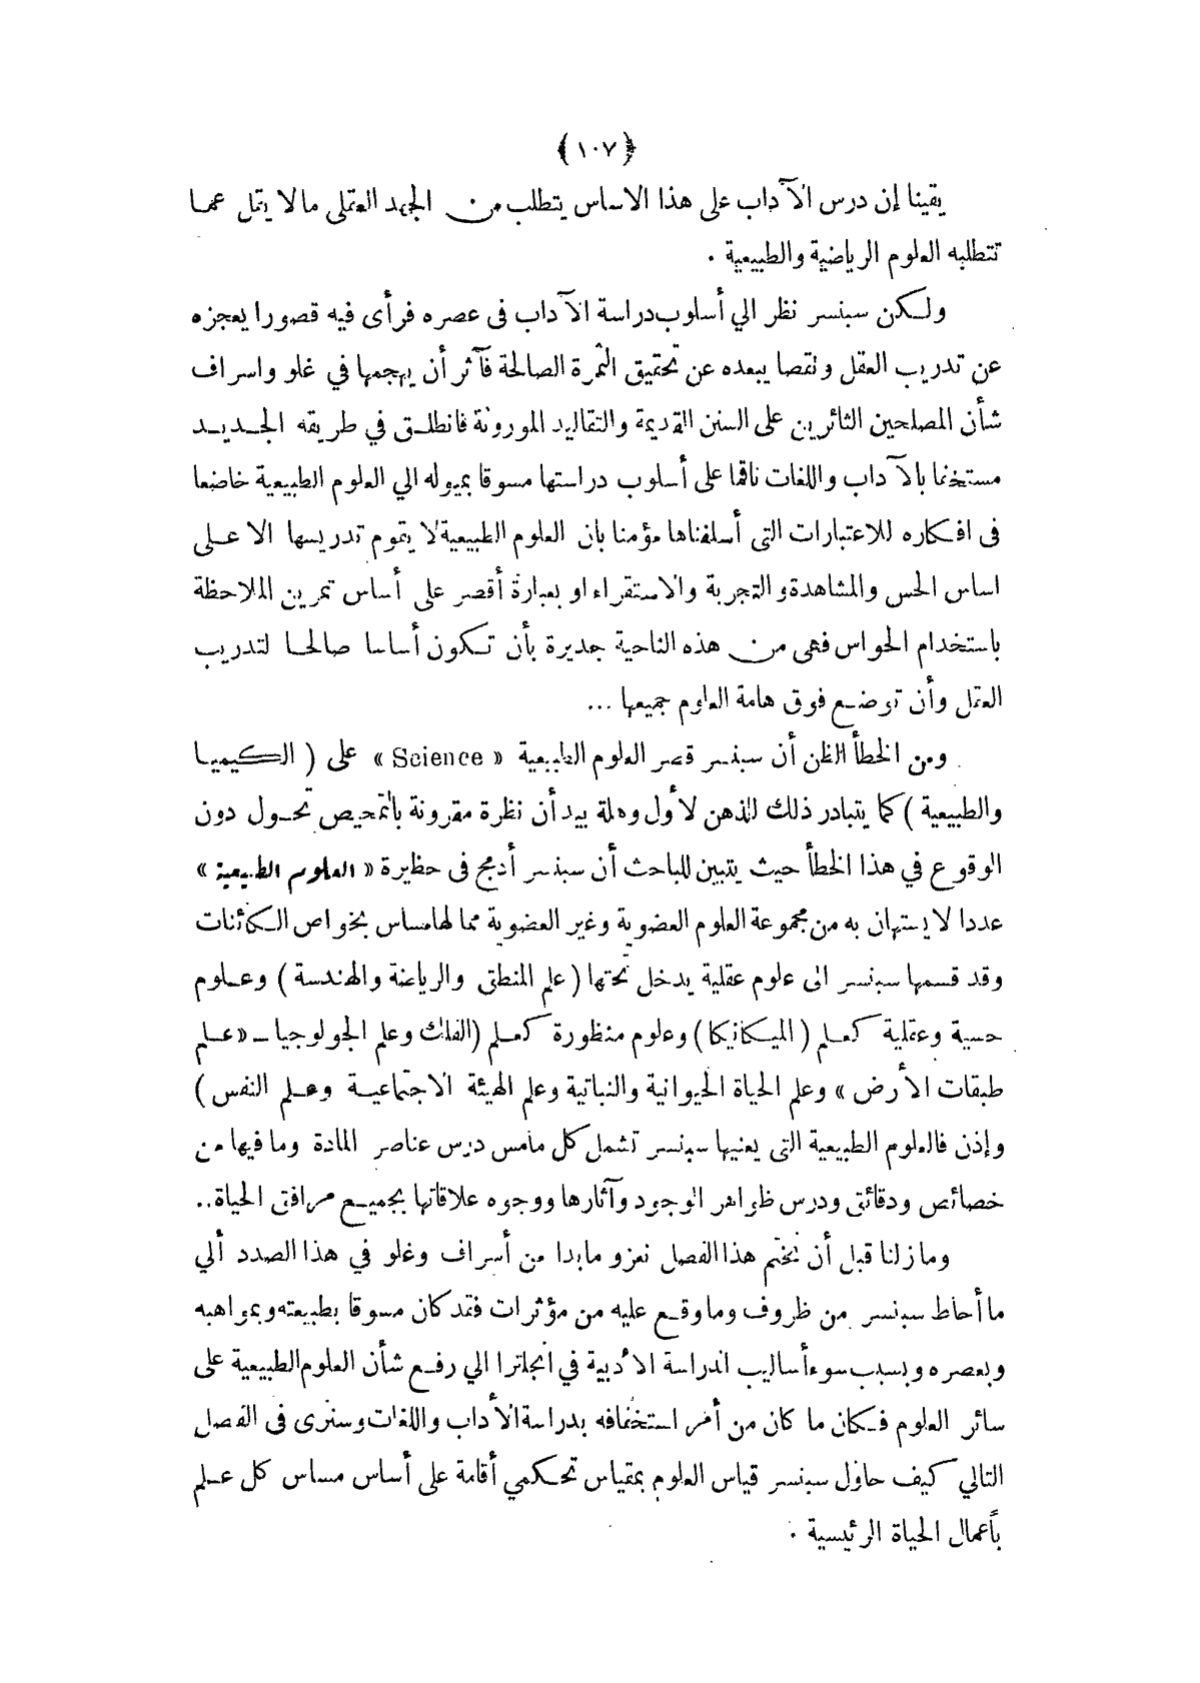 ﴿ ١٠٧ ﴾
يقينا إن درس الآداب على هذا الاساس يتطلب من الجهد العقلى مالا يقل عما
تتطلبه العلوم الرياضية والطبيعية .
ولكن سبنسر نظر الي أسلوب دراسة الآداب فى عصره فرأى فيه قصورا يعجزه
عن تدريب العقل ونقصا يبعده عن تحقيق الثمرة الصالحة فآثر أن يهجمها في غلو واسراف
شأن المصلحين الثائرين على السنن القديمة والتقاليد الموروثة فانطلق في طريقه الجديد
مستخفا بالآداب واللغات ناقما على أسلوب دراستها مسوقا بميوله الي العلوم الطبيعية خاضعا
فى افكاره للاعتبارات التى أسلفناها مؤمنا بان العلوم الطبيعية لا يقوم تدريسها الا على
اساس الحس والمشاهدة والتجربة والاستقراء او بعبارة أقصر على أساس تمرين الملاحظة
باستخدام الحواس فهى من هذه الناحية جديرة بأن تكون أساسا صالحا لتدريب
العقل وأن توضع فوق هامة العلوم جميعها ...
ومن الخطأ الظن أن سبنسر قصر العلوم الطبيعية « Science » على ( الكيميا
والطبيعية ) كما يتبادر ذلك للذهن لأول وهلة بيد أن نظرة مقرونة بالتمحيص تحول دون
الوقوع في هذا الخطأ حيث يتبين للباحث أن سبنسر أدمج فى حظيرة « العلوم الطبيعية »
عددا لا يستهان به من مجموعة العلوم العضوية وغير العضوية مما لها مساس بخواص الكائنات
وقد قسمها سبنسر الى علوم عقلية يدخل تحتها ( علم المنطق والرياضة والهندسة ) وعلوم
حسية وعقلية كعلم ( الميكانيكا ) وعلوم منظورة كعلم (الفلك وعلم الجولوجيا ــ « علم
طبقات الأرض » وعلم الحياة الحيوانية والنباتية وعلم الهيئة الاجتماعية وعلم النفس )
وإذن فالعلوم الطبيعية التى يعنيها سبنسر تشمل كل مامس درس عناصر المادة وما فيها من
خصائص ودقائق ودرس ظواهر الوجود وآثارها ووجوه علاقاتها بجميع مرافق الحياة..
وما زلنا قبل أن نختم هذا الفصل نعزو ما بدا من أسراف وغلو في هذا الصدد ألي
ما أحاط سبنسر من ظروف وما وقع عليه من مؤثرات فقد كان مسوقا بطبيعته وبمواهبه
وبعصره وبسبب سوء أساليب الدراسة الأدبية في انجلترا الي رفع شأن العلوم الطبيعية على
سائر العلوم فكان ما كان من أمر استخفافه بدراسة الأداب واللغات وسنرى فى الفصل
التالي كيف حاول سبنسر قياس العلوم بمقياس تحكمي أقامة على أساس مساس كل علم
بأعمال الحياة الرئيسية .